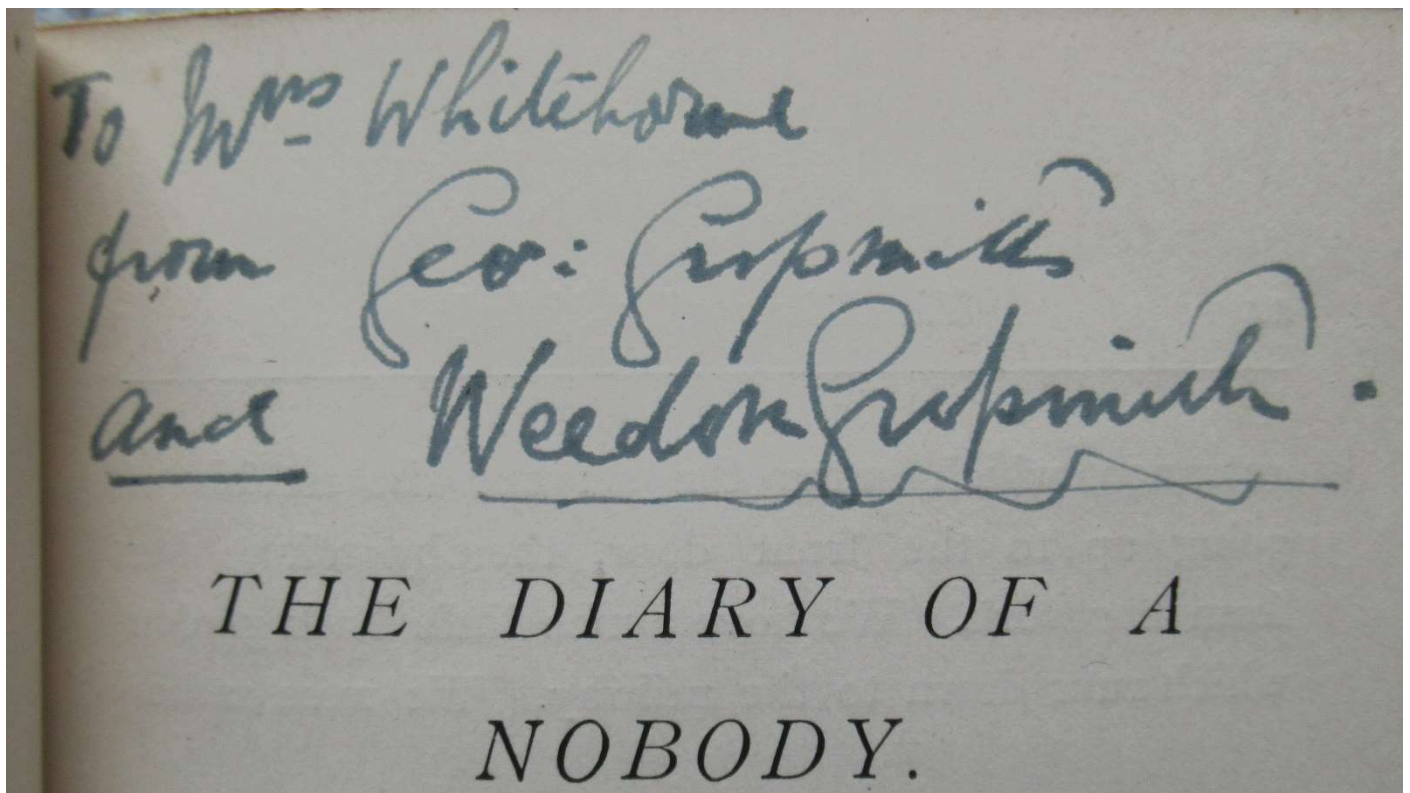 To Mrs Whitehorne
from Geo: Grossmith
and Weedon Grossmith.
THE DIARY OF A
NOBODY.